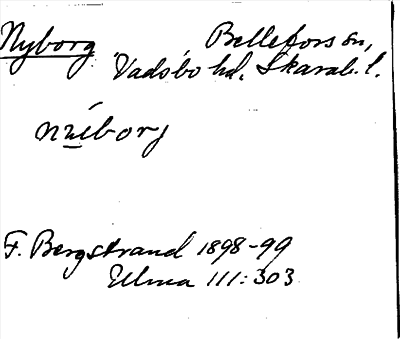 Nyborg Bellefors sn,
Vadsbo hd, Skarab. l.
nüborj
F. Bergstrand 1898-99
Ullma 111:303